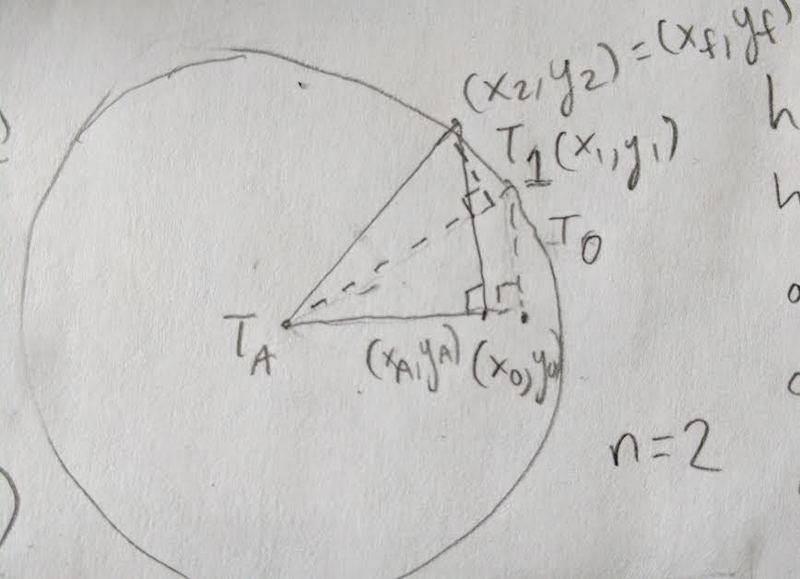 (x2,y2)=(xf,yf)
T1(x1,y1)
T0
TA
(xA,yA) (x0,y0)
n=2
h